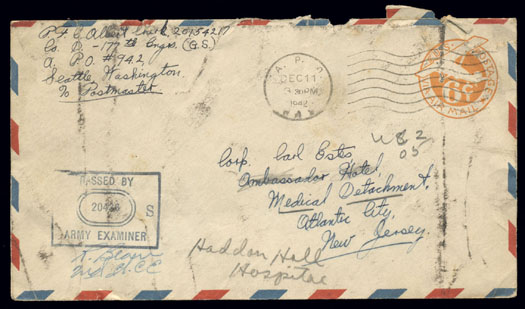 Pfc. Albert 20154217
Co. D - 177th Engrs. (G.S.)
A.P.O. # 942
Seattle, Washington.
% Postmaster
A. P. O.
DEC 11
30 PM
1942
6¢
VIA AIR MAIL
Corp. Carl Estes
Ambassador Hotel
Medical Detachment,
Atlantic City,
New Jersey.
PASSED BY
S
ARMY EXAMINER
Haddon Hall
Hospital